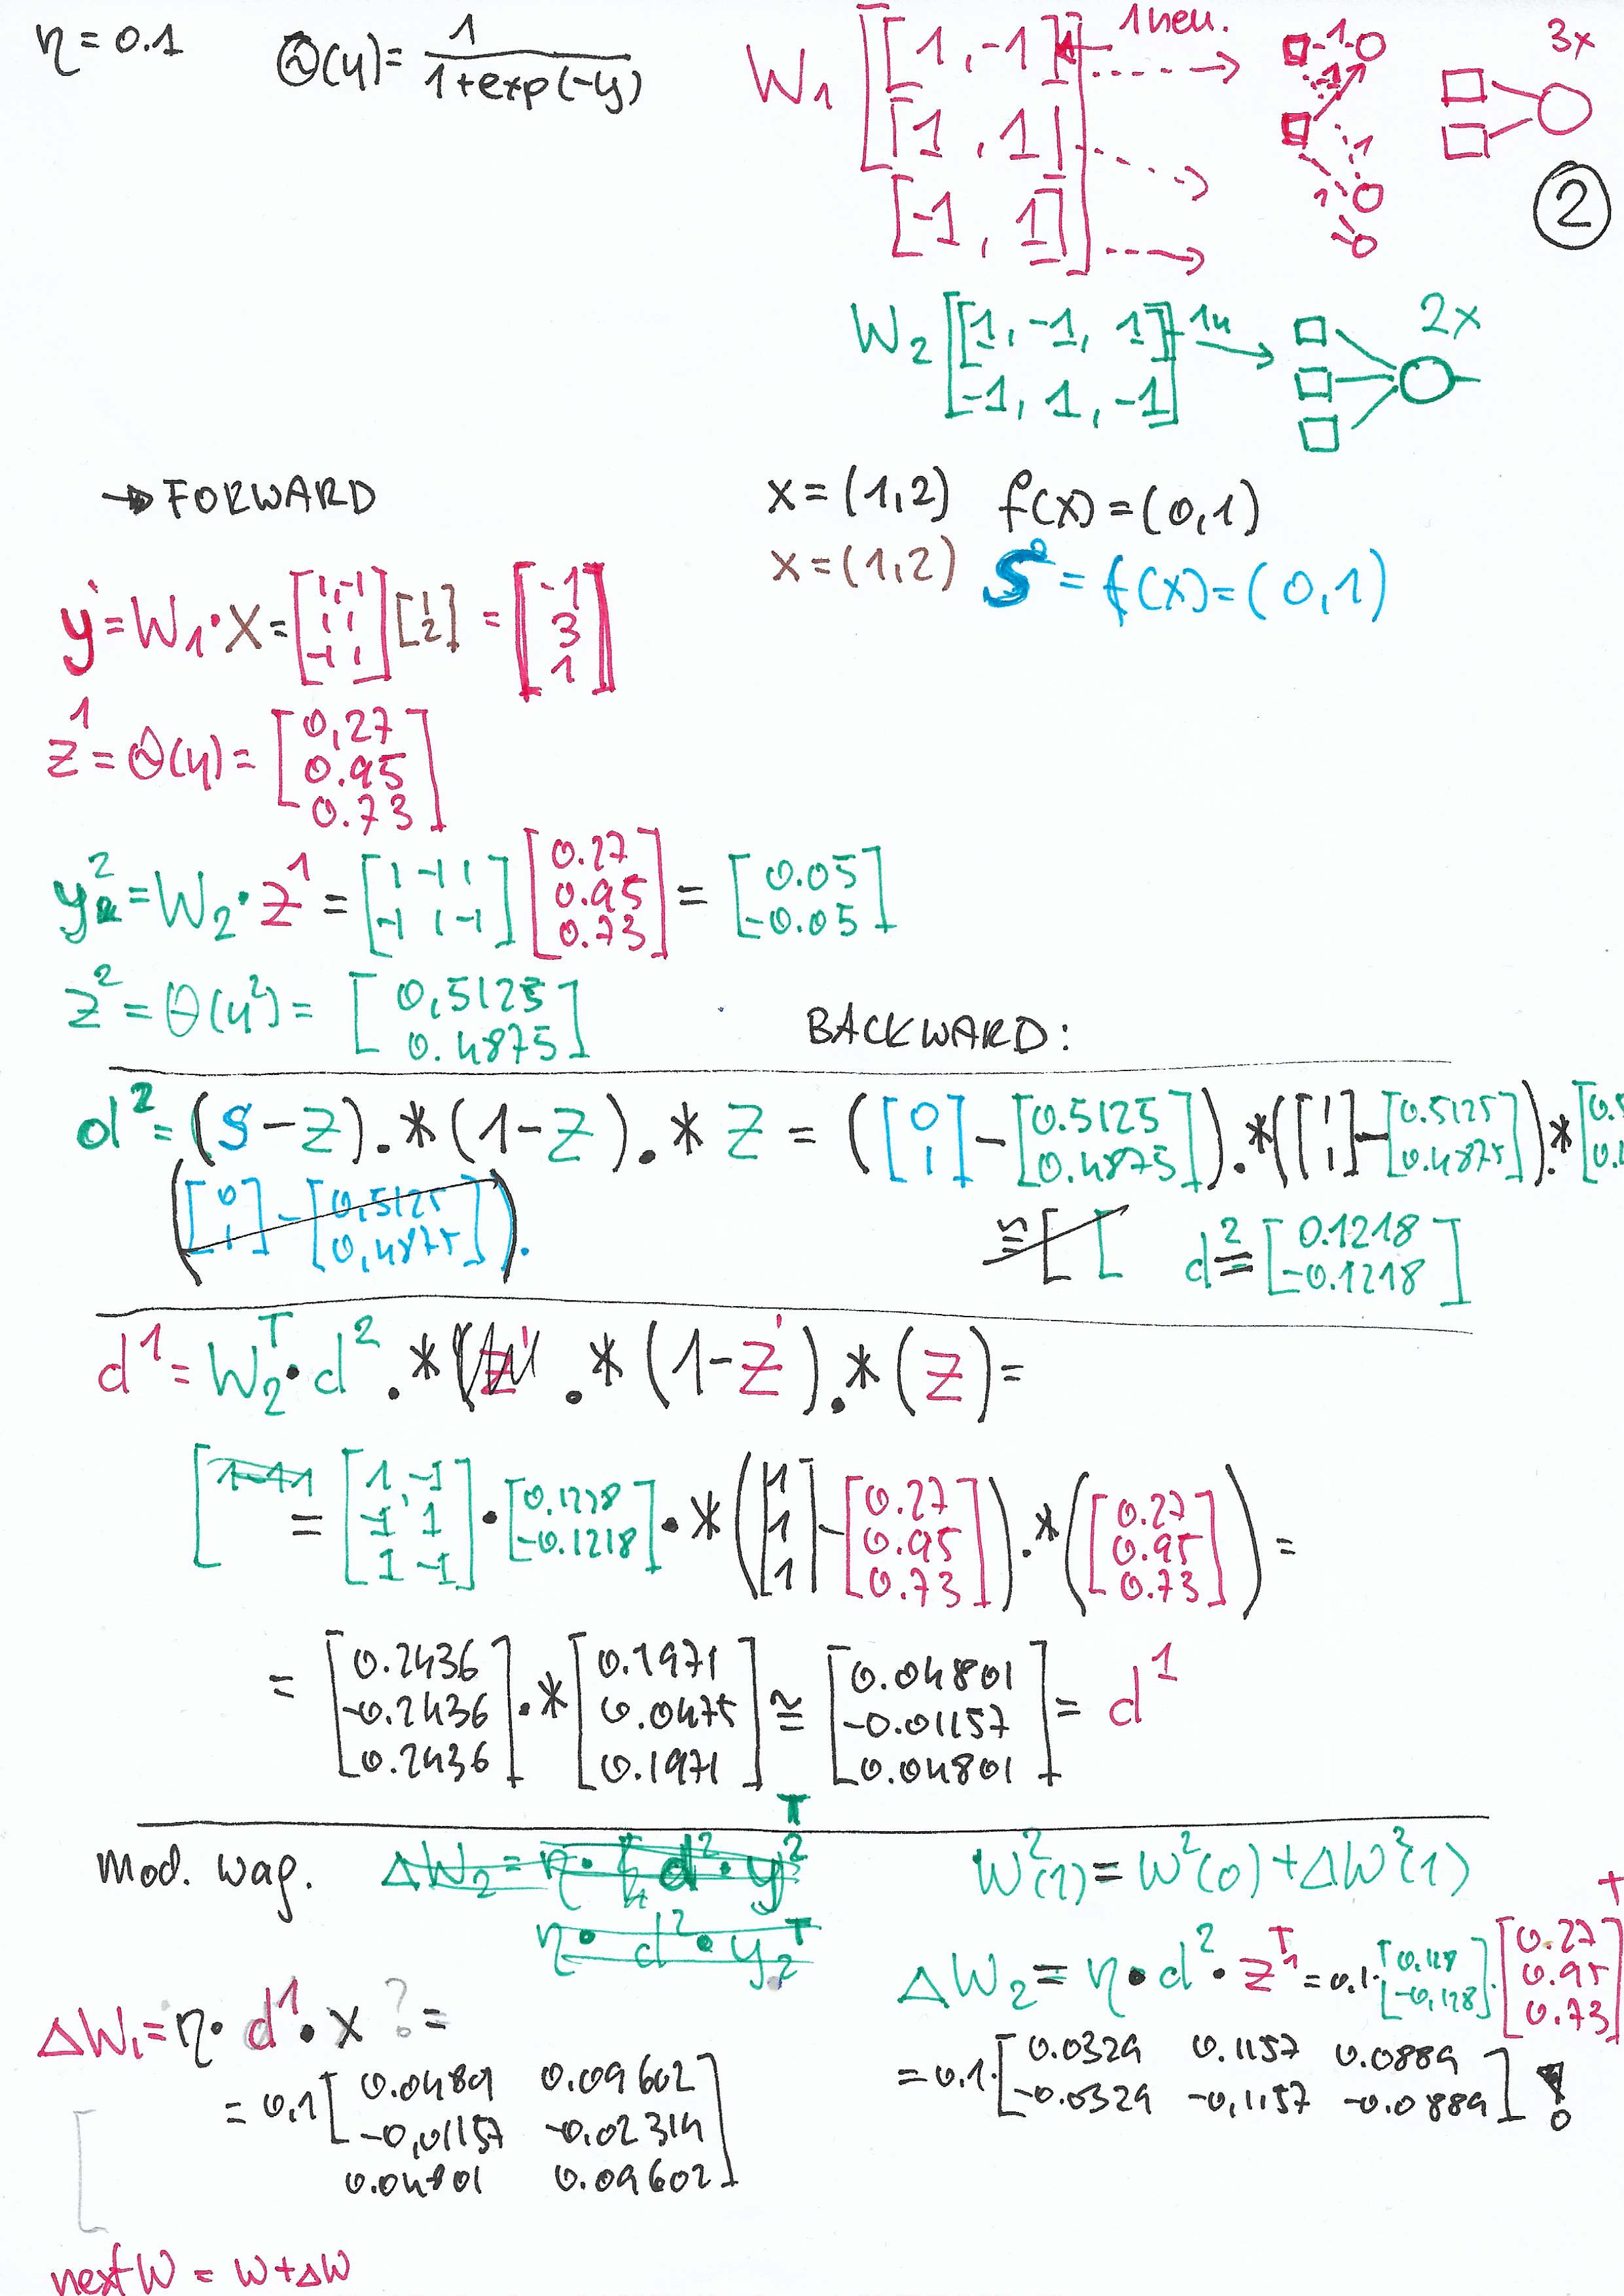 η = 0.1 Θ(y) = 1 / (1+exp(-y))
W1 [[1,-1] 1 neu. 3x
[1, 1]
[-1, 1]]
2
W2 [[1, -1, 1] 1n 2x
[-1, 1, -1]]
→ FORWARD
x = (1,2) f(x) = (0,1)
x = (1,2) S = f(x) = (0,1)
y = W1 · X = [1 -1; 1 1; -1 1] [1; 2] = [-1; 3; 1]
z¹ = Θ(y) = [0,27; 0.95; 0.73]
y² = W2 · z¹ = [1 -1 1; -1 1 -1] [0.27; 0.95; 0.73] = [0.05; -0.05]
z² = Θ(y²) = [0,5125; 0.4875]
BACKWARD:
d² = (S - z) .* (1 - z) .* z = ([0; 1] - [0.5125; 0.4875]) .* ([1; 1] - [0.5125; 0.4875]) .* [
([0; 1] - [0,5125; 0,4875]).
≅ [ [ d² ≅ [0.1218; -0.1218]
d¹ = W2ᵀ · d² .* .* (1 - z¹) .* (z) =
[1 -1 1
= [1, -1; -1 1; 1 -1] · [0.1218; -0.1218] .* ([1; 1; 1] - [0.27; 0.95; 0.73]) .* ([0.27; 0.95; 0.73]) =
= [0.2436; -0.2436; 0.2436] .* [0.1971; 0.0475; 0.1971] ≅ [0.04801; -0.01157; 0.04801] = d¹
Mod. wag. ΔW2 = η · d² · y²ᵀ
η · d² · y2ᵀ
W²(1) = W²(0) + ΔW²(1)
ΔW2 = η · d² · z¹ᵀ = 0.1 · [0.128; -0,128] · [0.27; 0.95; 0.73]ᵀ
= 0.1 · [0.0329 0.1157 0.0889; -0.0329 -0,1157 -0.0889] !
ΔW1 = η · d¹ · x ? =
= 0,1 [0.0489 0.09602; -0,01157 -0.02314; 0.04801 0.09602]
next W = W + ΔW